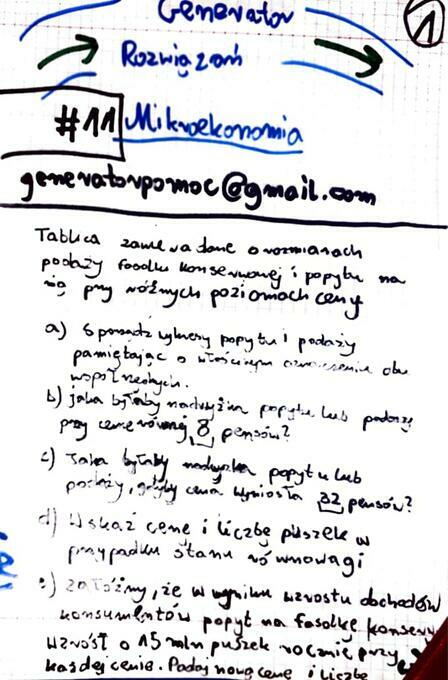 Generator
1
Rozwiązań
#11 Mikroekonomia
generatorpomoc@gmail.com
Tablica zawiera dane o rozmiarach
podaży fasolki konserwowej i popytu na
nią przy różnych poziomach ceny
a) Sporządź wykresy popytu i podaży
pamiętając o właściwym oznaczeniu osi
współrzędnych.
b) Jaka byłaby nadwyżka popytu lub podaży
przy cenie równej 8 pensów?
c) Jaka byłaby nadwyżka popytu lub
podaży, gdyby cena wynosiła 32 pensów?
d) Wskaż cenę i liczbę puszek w
przypadku stanu równowagi
e) Załóżmy, że w wyniku wzrostu dochodów
konsumentów popyt na fasolkę konserw
wzrósł o 15 mln puszek rocznie przy
każdej cenie. Podaj nową cenę i liczbę